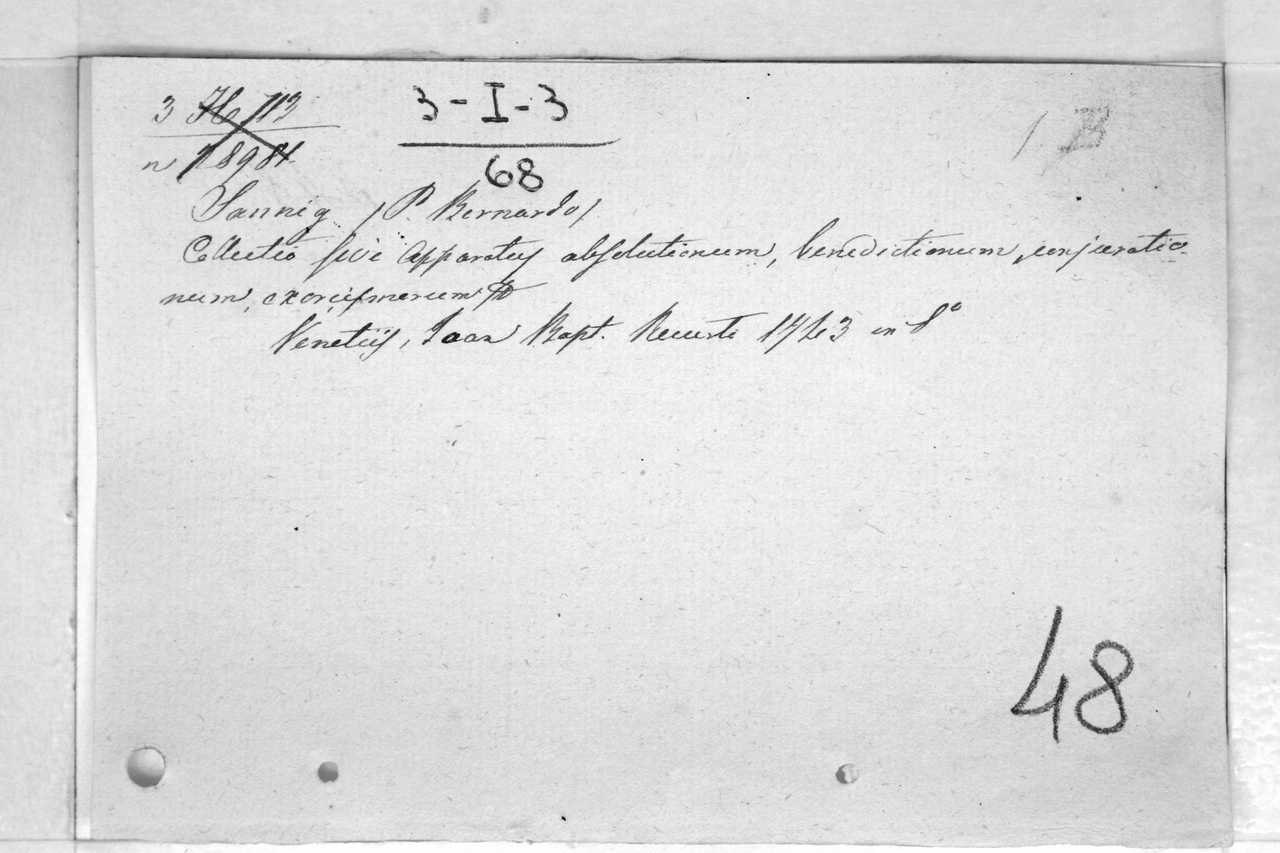 3 H 113
n 18981
3-I-3
68
1 B
Sannig (P. Bernardo)
Collectio sive apparatus absolutionum, benedictionum, conjuratio-
num, exorcismorum &
Venetiis, Joan Bapt. Recurti 1743 in 8º
48